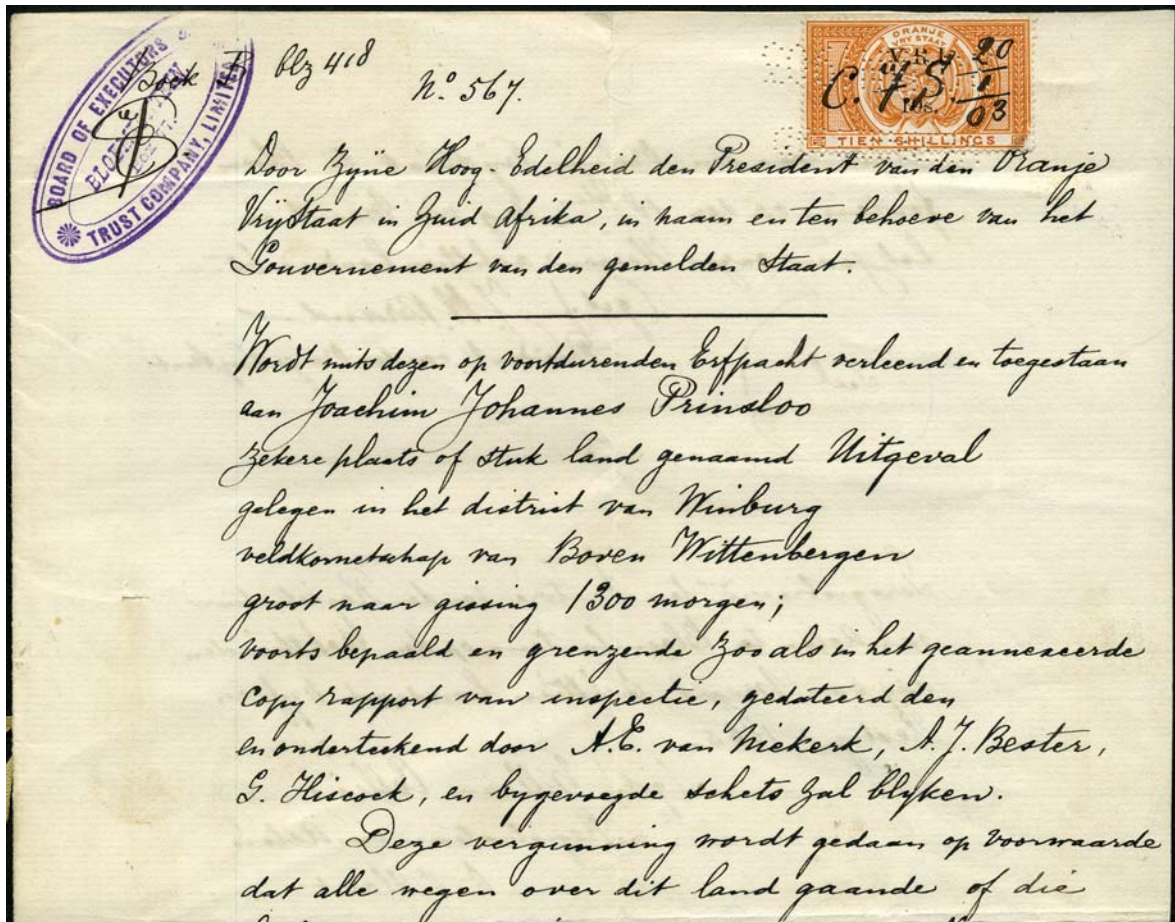 BOARD OF EXECUTORS &
TRUST COMPANY, LIMITED
Boek B blz 418
No. 567.
ORANJE
VRY STAAT
V.R.I.
C. 20
1
03
TIEN SHILLINGS
Door Zyne Hoog-Edelheid den President van den Oranje
Vrijstaat in Zuid Afrika, in naam en ten behoeve van het
Gouvernement van den gemelden Staat.
Wordt mits dezen op voortdurenden Erfpacht verleend en toegestaan
aan Joachim Johannes Prinsloo
zekere plaats of stuk land genaamd Uitgeval
gelegen in het district van Winburg
veldkornetschap van Boven Wittenbergen
groot naar gissing 1300 morgen;
voorts bepaald en grenzende zoo als in het geannexeerde
copy rapport van inspectie, gedateerd den
en onderteekend door A.E. van Niekerk, A.J. Bester,
G. Hiscock, en bygevoegde schets zal blyken.
Deze vergunning wordt gedaan op voorwaarde
dat alle wegen over dit land gaande of die